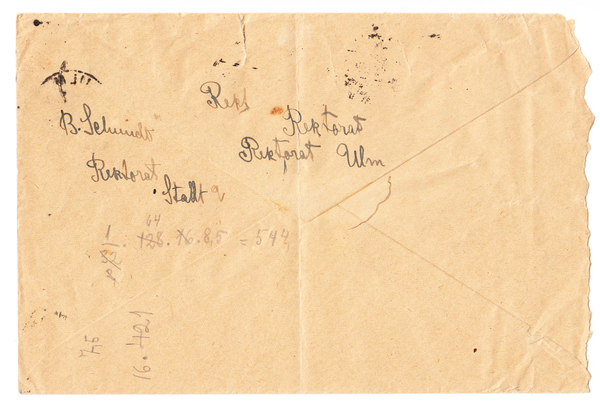 Rek
B. Schmidt
Rektorat
Rektorat Ulm
Rektorat
Stadt
64
128. 16. 8,5 = 544
16.421